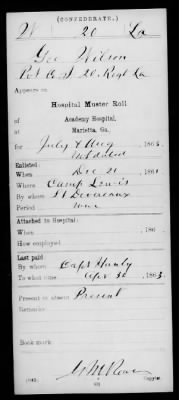 (CONFEDERATE.)
W 20 La
Geo Wilson
Pvt Co. 20. Regt La
Appears on
Hospital Muster Roll
of
Academy Hospital,
Marietta, Ga.,
for July & Aug 1863.
Enlisted:
When Dec 21 1861
Where Camp Lewis
By whom
Period war
Attached to Hospital:
When 186 .
How employed
Last paid:
By whom Capt
To what time Apr 30 1863.
Present or absent Present
Remarks:
Book mark:
Copyist.